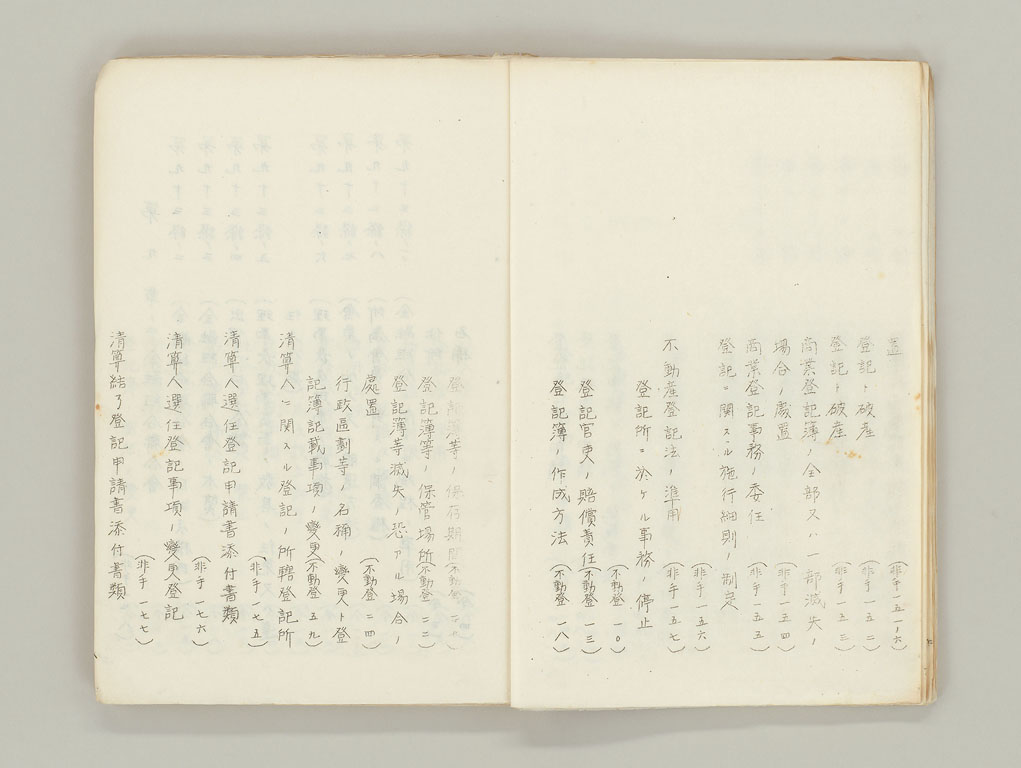 置
(非手一五一ノ六)
登記ト破産
(非手一五二)
登記ト破産
(非手一五三)
商業登記簿ノ全部又ハ一部滅失ノ
場合ノ處置
(非手一五四)
商業登記事務ノ委任
(非手一五五)
登記ニ関スル施行細則ノ制定
(非手一五六)
不動産登記法ノ準用
(非手一五七)
登記所ニ於ケル事務ノ停止
(不動登 一〇)
登記官吏ノ賠償責任(不動登 一三)
登記簿ノ作成方法 (不動登 一八)
登記簿等ノ保存期間(不動登
登記簿等ノ保管場所(不動登 二二)
登記簿等滅失ノ恐アル場合ノ
處置
(不動登 二四)
行政區劃等ノ名稱ノ變更ト登
記簿記載事項ノ變更(不動登 五九)
清算人ニ関スル登記ノ所轄登記所
(非手 一七五)
清算人選任登記申請書添付書類
(非手 一七六)
清算人選任登記事項ノ變更登記
(非手 一七七)
清算結了登記申請書添付書類